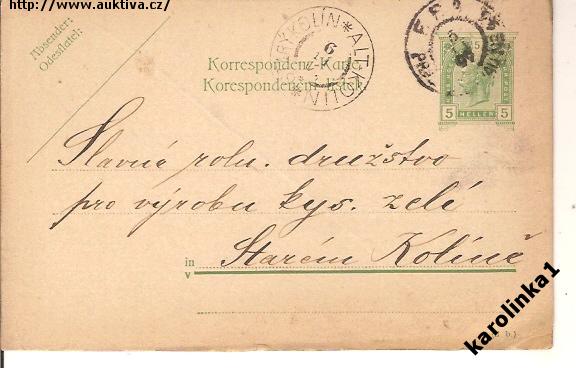 http://www.auktiva.cz/
Absender:
Odesílatel:
ALT KOLIN
6
Korrespondenz-Karte.
Korespondenční lístek.
5
5 HELLER 5
Slavné roln. družstvo
pro výrobu kys. zelé
in
v
Starém Kolíně
karolinka1